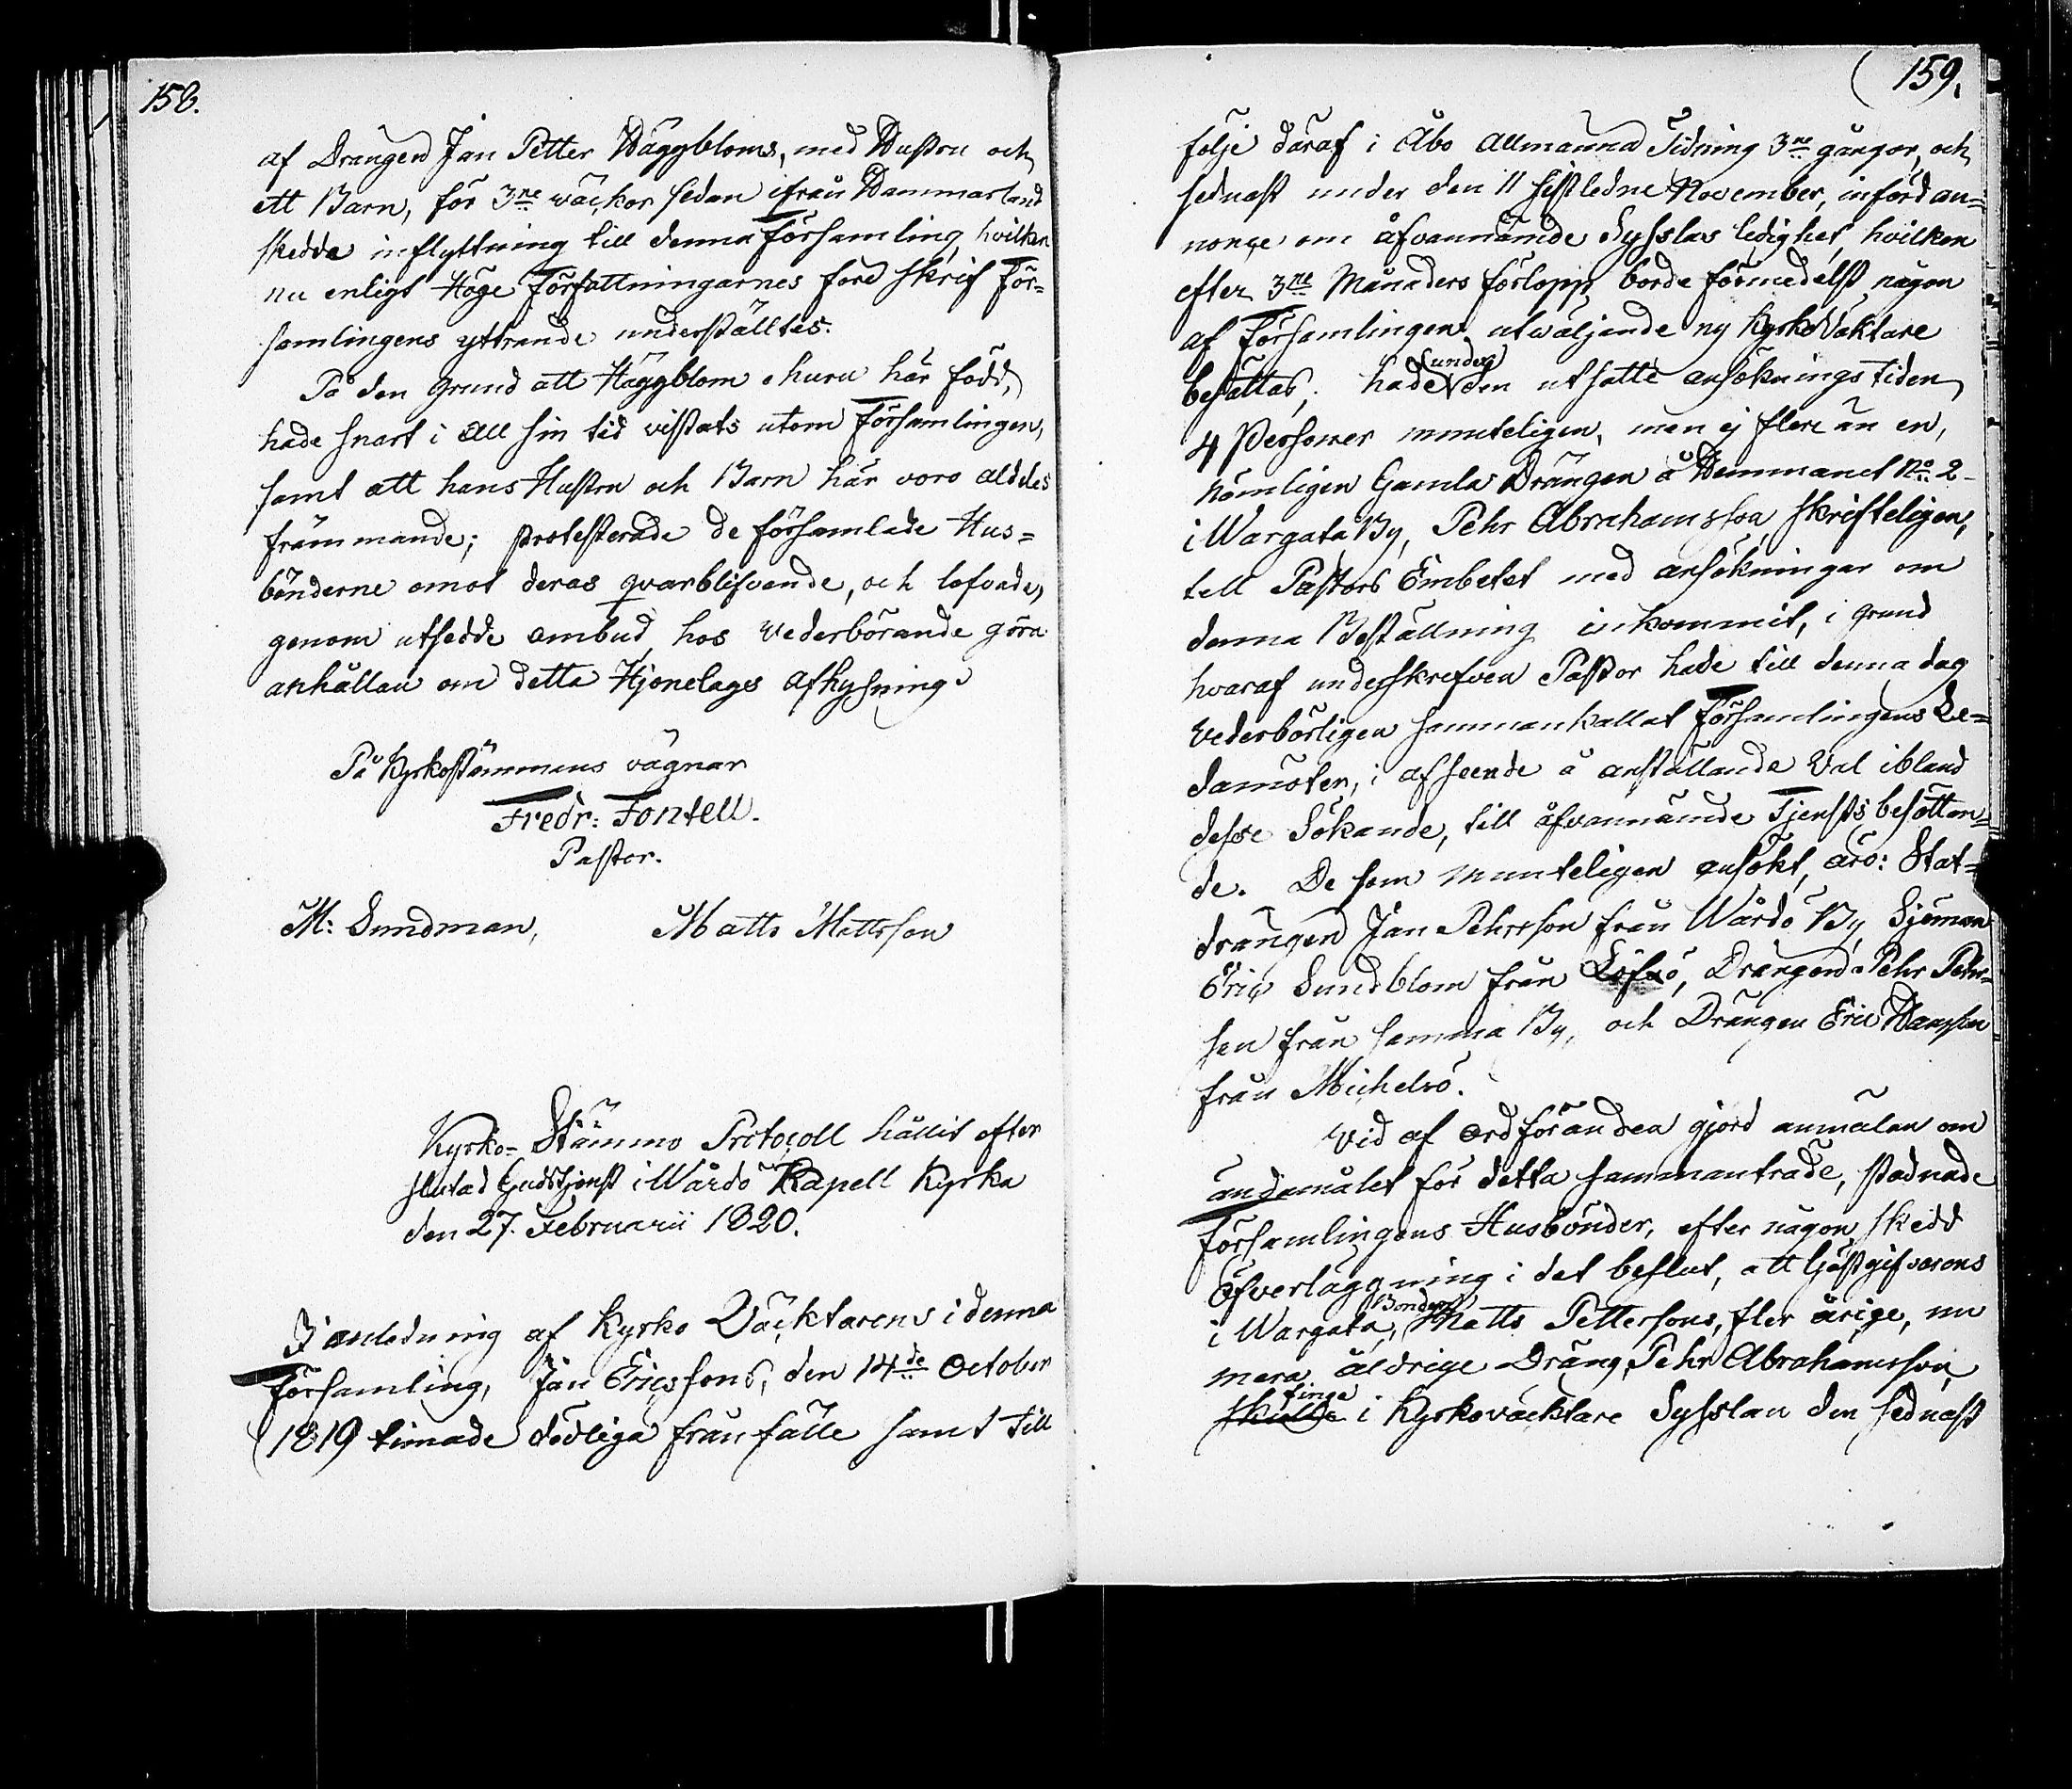 158.
af Drängen Jan Petter Häggbloms, med Hustru och
ett Barn, för 3ne wäckor sedan ifrån Hammarland
skedde inflyttning till denna Församling, hvilken
nu enligt Höge Författningarnes föreskrif För=
samlingens yttrande underställtes.
På den grund att Häggblom ehuru här född,
hade snart i all sin tid vistats utom Församlingen,
samt att hans Hustru och Barn här voro aldeles
främmande; protesterade de församlade Hus=
bönderne emot deras qvarblifvande, och lofvade,
genom utsedde ombud, hos Vederbörande göra
anhållan om detta Hjonelags afhysning.
På Kyrkostämmans vägnar
Fredr: Fontell.
Pastor.
M: Sundman, Matts Mattsson
Kyrko-Stämmo Protocoll hållit efter
slutad Gudstjenst i Wårdö Kapell Kyrka
den 27. Februarii 1820.
I anledning af Kyrko Väcktarens i denna
Församling, Jan Ericssons, den 14de October
1819 timade dödliga frånfälle samt till
159.
följe däraf i Åbo Allmänna Tidning 3ne gångor, och
sednast under den 11 sistledne November, införd an=
nonçe om åfvannämde Sysslas ledighet, hvilken
efter 3ne Månaders förlopp, borde förmedelst någon
af Församlingen utwäljande ny KyrkoVäktare
besättas; hade under den utsatte ansökningstiden
4 Personer munteligen, men ej flere än en,
nämligen Gamla Drängen å Hemmanet No 2
i Wargata By, Pehr Abrahamsson, skrifteligen,
till Pastors Embetet med ansökningar om
denna Beställning inkommit, i grund
hvaraf underskrefven Pastor hade till denna dag
vederbörligen sammankallat Församlingens Le=
damöter, i afseende å anställande Val ibland
desse Sökande, till åfvannämde Tjensts besättan=
de. De som munteligen ansökt, äro: Stat=
drängen Jan Pehrsson från Wårdö By, Sjöman
Eric Sundblom från Löfvö, Drängen Pehr Pehrs=
son från samma By, och Drängen Eric Hansson
från Michelsö.
Vid af Ordföranden gjord anmälan om
ändamålet för detta sammanträde, stadnade
Församlingens Husbönder, efter någon skedd
Öfverläggning i det beslut, att Gästgifvarens
i Wargata, Bonden Matts Petterssons, fler årige, nu
mera åldrige Dräng, Pehr Abrahamsson,
skulle finge i Kyrkoväcktare Sysslan den sednast